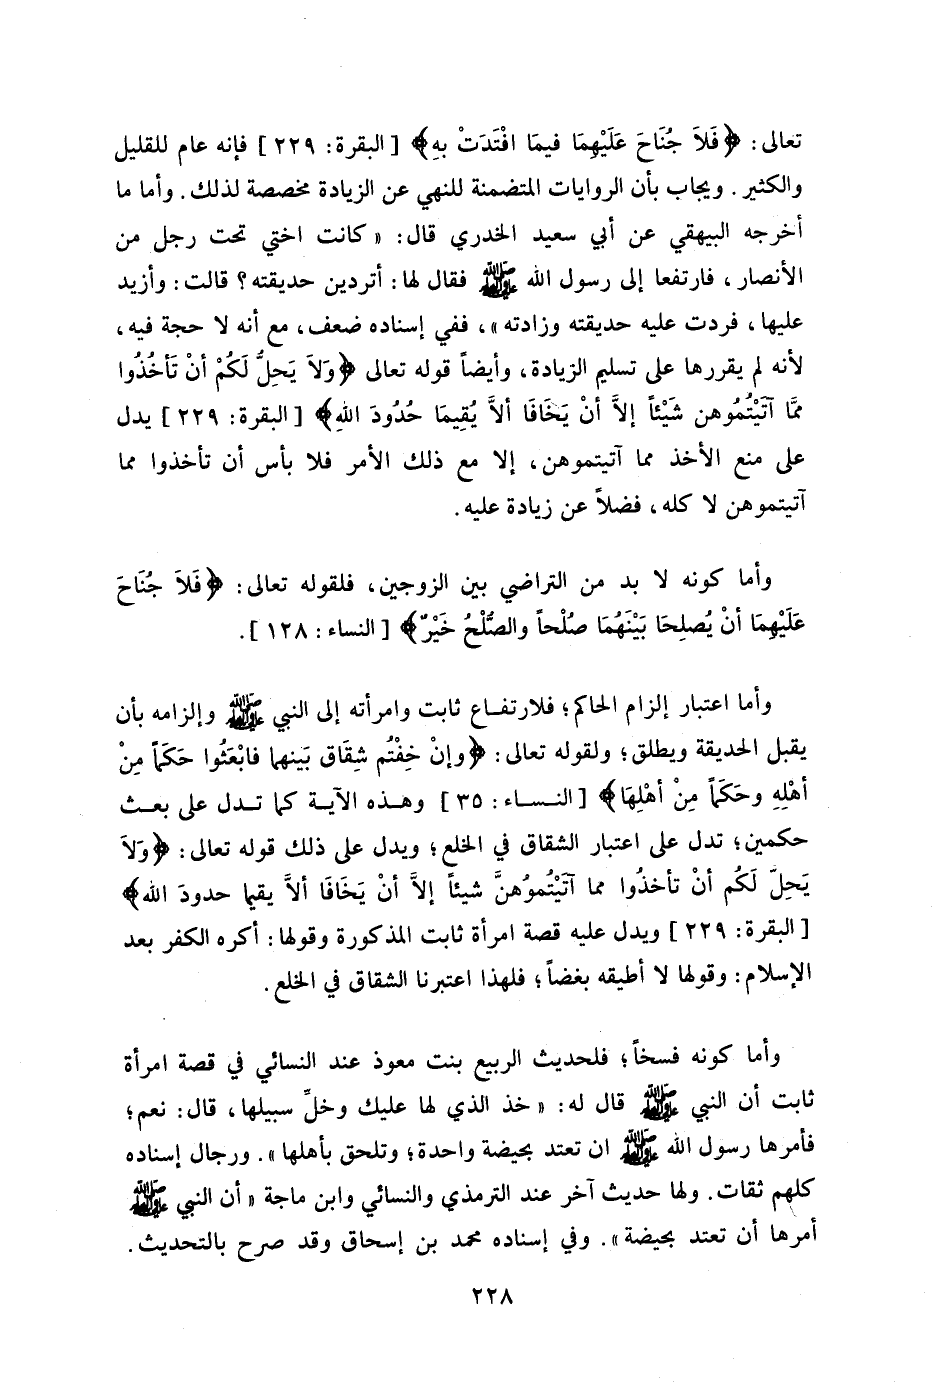 تعالى: ﴿فَلاَ جُنَاحَ عَلَيْهِمَا فيمَا افْتَدَتْ بهِ﴾ [البقرة: ٢٢٩] فإنه عام للقليل
والكثير. ويجاب بأن الروايات المتضمنة للنهي عن الزيادة مخصصة لذلك. وأما ما
أخرجه البيهقي عن أبي سعيد الخدري قال: «كانت اختي تحت رجل من
الأنصار، فارتفعا إلى رسول الله ﷺ فقال لها: أتردين حديقته؟ قالت: وأزيد
عليها، فردت عليه حديقته وزادته»، ففي إسناده ضعف، مع أنه لا حجة فيه،
لأنه لم يقررها على تسليم الزيادة، وأيضاً قوله تعالى ﴿وَلاَ يَحلُّ لَكُمْ أنْ تَأخُذُوا
ممَّا آتَيْتُمُوهن شَيْئاً إلاَّ أنْ يَخَافَا ألاَّ يُقِيمَا حُدُودَ اللهِ﴾ [البقرة: ٢٢٩] يدل
على منع الأخذ مما آتيتموهن، إلا مع ذلك الأمر فلا بأس أن تأخذوا مما
آتيتموهن لا كله، فضلاً عن زيادة عليه.
وأما كونه لا بد من التراضي بين الزوجين، فلقوله تعالى: ﴿فَلاَ جُنَاحَ
عَلَيْهِمَا أنْ يُصلِحَا بَيْنَهُمَا صُلْحاً والصُّلْحُ خَيْرٌ﴾ [النساء: ١٢٨].
وأما اعتبار إلزام الحاكم؛ فلارتفـاع ثابت وامرأته إلى النبي ﷺ وإلزامه بأن
يقبل الحديقة ويطلق؛ ولقوله تعالى: ﴿وإنْ خِفْتُم شِقَاق بَينهما فابْعَثُوا حَكَماً مِنْ
أهْلِهِ وحَكَماً مِنْ أهْلِهَا﴾ [النـسـاء: ٣٥] وهـذه الآيـة كما تـدل على بعـث
حكمين؛ تدل على اعتبار الشقاق في الخلع؛ ويدل على ذلك قوله تعالى: ﴿وَلاَ
يَحِلَّ لَكُم أنْ تأخذُوا مما آتَيْتُموُهنَّ شيئاً إلاَّ أنْ يَخَافَا ألاَّ يقيما حدودَ الله﴾
[البقرة: ٢٢٩] ويدل عليه قصة امرأة ثابت المذكورة وقولها: أكره الكفر بعد
الإسلام: وقولها لا أطيقه بغضاً؛ فلهذا اعتبرنا الشقاق في الخلع.
وأما كونه فسخاً؛ فلحديث الربيع بنت معوذ عند النسائي في قصة امرأة
ثابت أن النبي ﷺ قال له: «خذ الذي لها عليك وخلِّ سبيلها، قال: نعم؛
فأمرها رسول الله ﷺ ان تعتد بحيضة واحدة؛ وتلحق بأهلها». ورجال إسناده
كلهم ثقات. ولها حديث آخر عند الترمذي والنسائي وابن ماجة «أن النبي ﷺ
أمرها أن تعتد بحيضة». وفي إسناده محمد بن إسحاق وقد صرح بالتحديث.
٢٢٨